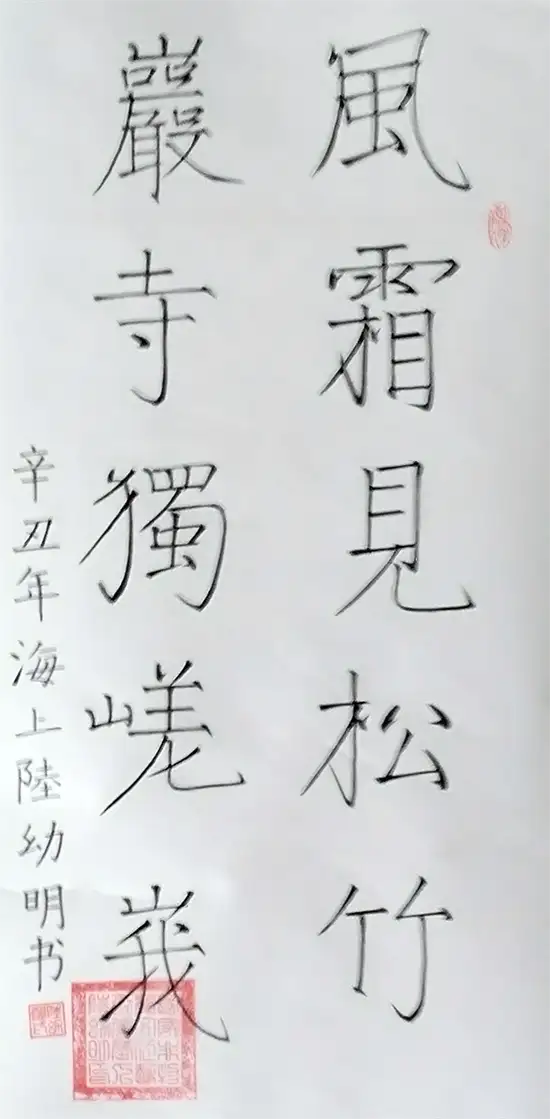 風霜見松竹
巖寺獨嵯峩
辛丑年海上陸幼明书